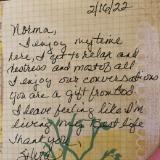 2/16/22
Norma,
I enjoy my time
here, I get to relax and
destress and most of all
I enjoy our conversations
you are a gift from God.
I leave feeling like I'm
living my best life
Thank you